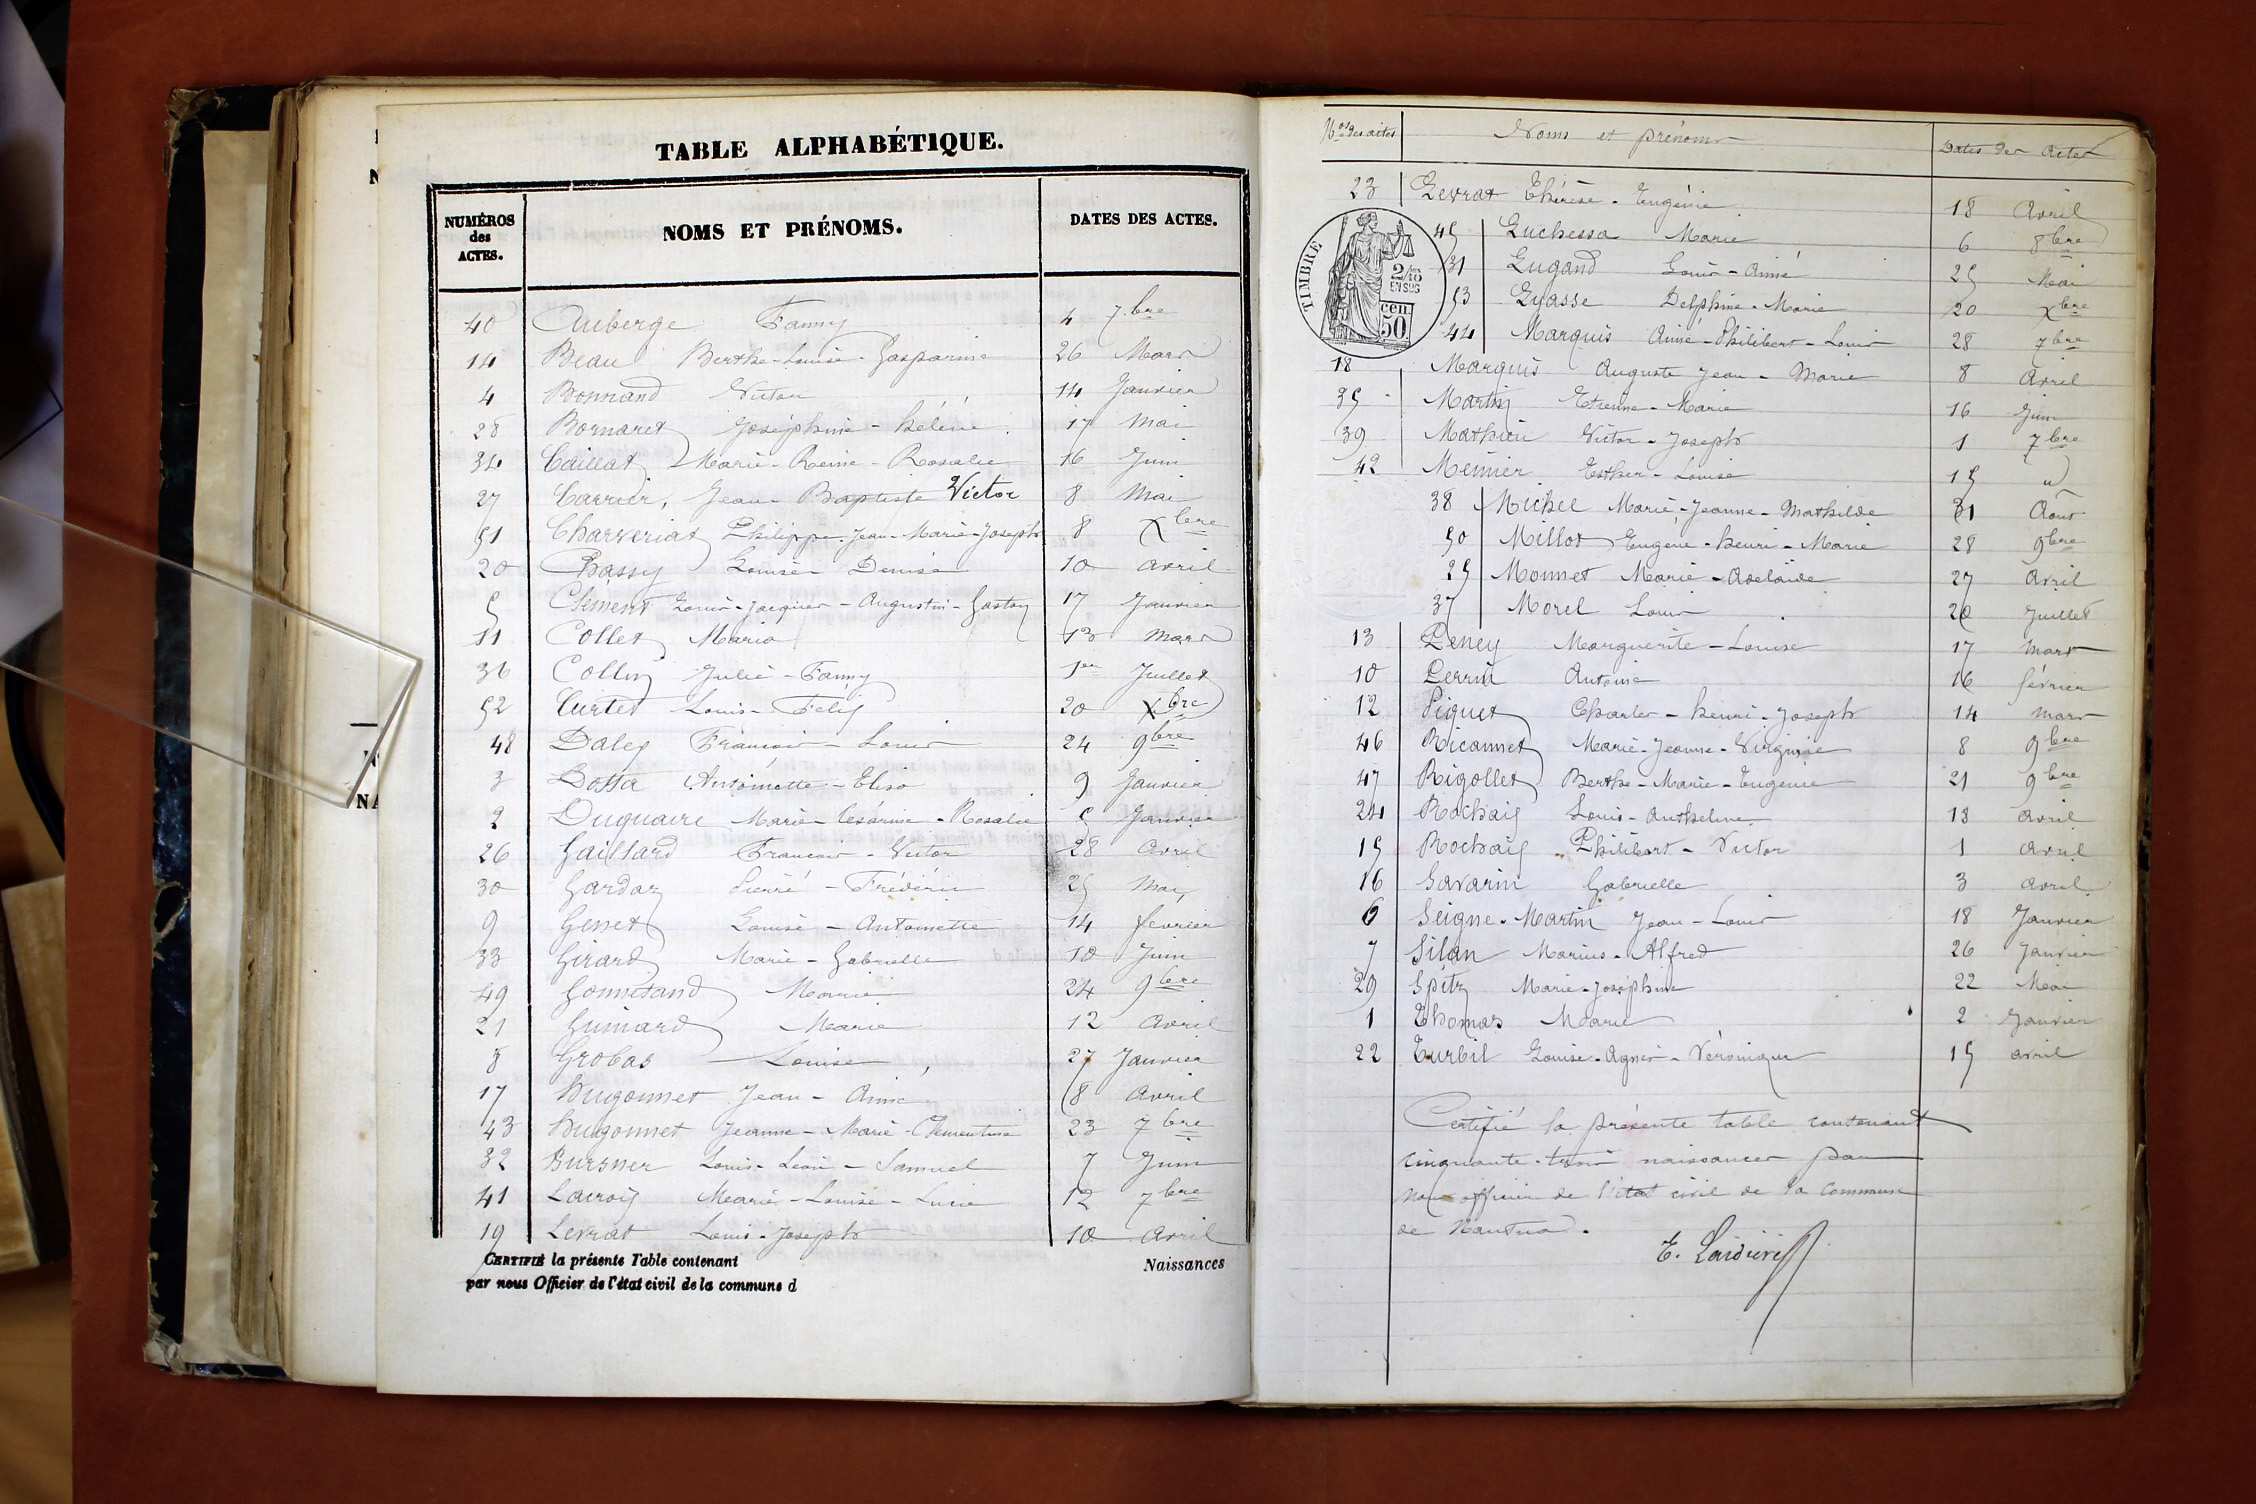 TABLE ALPHABÉTIQUE.
NUMÉROS des ACTES. NOMS ET PRÉNOMS. DATES DES ACTES.
40 Auberge Fanny 4 7bre
14 Beau Berthe-Louise-Gasparine 26 Mars
4 Bonnand Victor 14 Janvier
28 Bornaret Joséphine-Hélène 17 Mai
34 Caillat Marie-Reine-Rosalie 16 Juin
27 Carrier, Jean-Baptiste Victor 8 Mai
51 Charveriat Philippe-Jean-Marie-Joseph 8 Xbre
20 Chassy Louise Denise 10 Avril
5 Clément Louis-Jacques-Augustin-Gaston 17 Janvier
11 Collet Maria 13 Mars
36 Collin Julie-Fanny 1er Juillet
52 Curtet Louis-Félix 20 Xbre
48 Daley François-Louis 24 9bre
3 Dotta Antoinette-Elisa 9 Janvier
2 Duquaire Marie-Césarine-Rosalie 5 Janvier
26 Gaillard François-Victor 28 Avril
30 Gardaz Pierre-Frédéric 25 Mai
9 Genet Louise-Antoinette 14 février
33 Girard Marie-Gabrielle 10 Juin
49 Gonnetand Marie 24 9bre
21 Guinard Marie 12 Avril
8 Grobas Louise 27 Janvier
17 Hugonnet Jean-Aimé 8 Avril
43 Hugonnet Jeanne-Marie-Clémentine 23 7bre
32 Hursner Louis-Léon-Samuel 7 Juin
41 Lacroix Marie-Louise-Lucie 12 7bre
19 Levrat Louis-Joseph 10 Avril
CERTIFIÉ la présente Table contenant Naissances
par nous Officier de l'état civil de la commune d
Nos des actes Noms et prénoms Dates des Actes
23 Levrat Thérèse-Eugénie 18 Avril
45 Luchessa Marie 6 8bre
31 Lugand Louis-Aimé 25 Mai
53 Lyasse Delphine-Marie 20 Xbre
44 Marquis Aimé-Philibert-Louis 28 7bre
18 Marquis Auguste Jean-Marie 8 Avril
35 Martin Etienne-Marie 16 Juin
39 Mathieu Victor-Joseph 1 7bre
42 Meunier Esther-Louise 15 "
38 Michel Marie-Jeanne-Mathilde 31 Aout
50 Millot Eugène-Henri-Marie 28 9bre
25 Monnet Marie-Adelaïde 27 Avril
37 Morel Louis 20 Juillet
13 Peney Marguerite-Louise 17 Mars
10 Perrin Antoine 16 février
12 Piquet Charles-Henri-Joseph 14 Mars
46 Ricannet Marie-Jeanne-Virginie 8 9bre
47 Rigollet Berthe-Marie-Eugénie 21 9bre
24 Rochaix Louis-Anthelme 18 Avril
15 Rochaix Philibert-Victor 1 Avril
16 Savarin Gabrielle 3 Avril
6 Seigne-Martin Jean-Louis 18 Janvier
7 Silan Marius-Alfred 26 Janvier
29 Spitz Marie-Joséphine 22 Mai
1 Thomas Marie 2 Janvier
22 Turbil Louise-Agnès-Véronique 15 Avril
Certifié la présente table contenant
cinquante-trois naissances par
nous officier de l'état civil de la commune
de Nantua.
TIMBRE
2/10 EN SUS
50 cen.